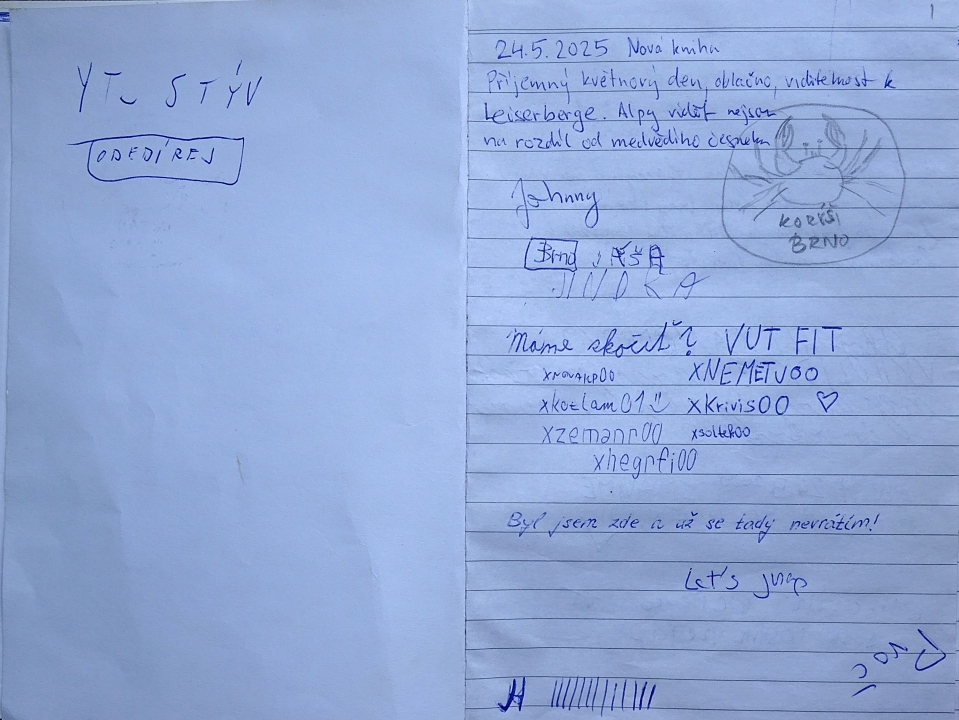 YT: STÝV
ODEDÍREJ
1
24.5.2025 Nová kniha
Příjemný květnový den, oblačno, viditelnost k
Leiserberge. Alpy vidět nejsou
na rozdíl od medvědího česneku
KORÝŠI
BRNO
Johnny
Brno JÁŠA
JINDRA
Máme skočit? VUT FIT
xNOVAKP00 xNEMETJ00
xkozlam01 xKrivis00
xzemanr00
xhegrfi00
Byl jsem zde a už se tady nevrátím!
Let's jump
Proč